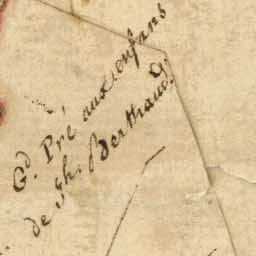 Gd. Pré aux enfans
de Jh. Berthaud